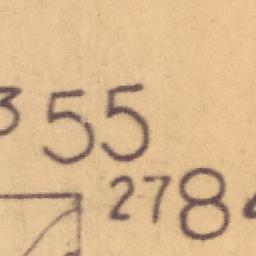 355
2784